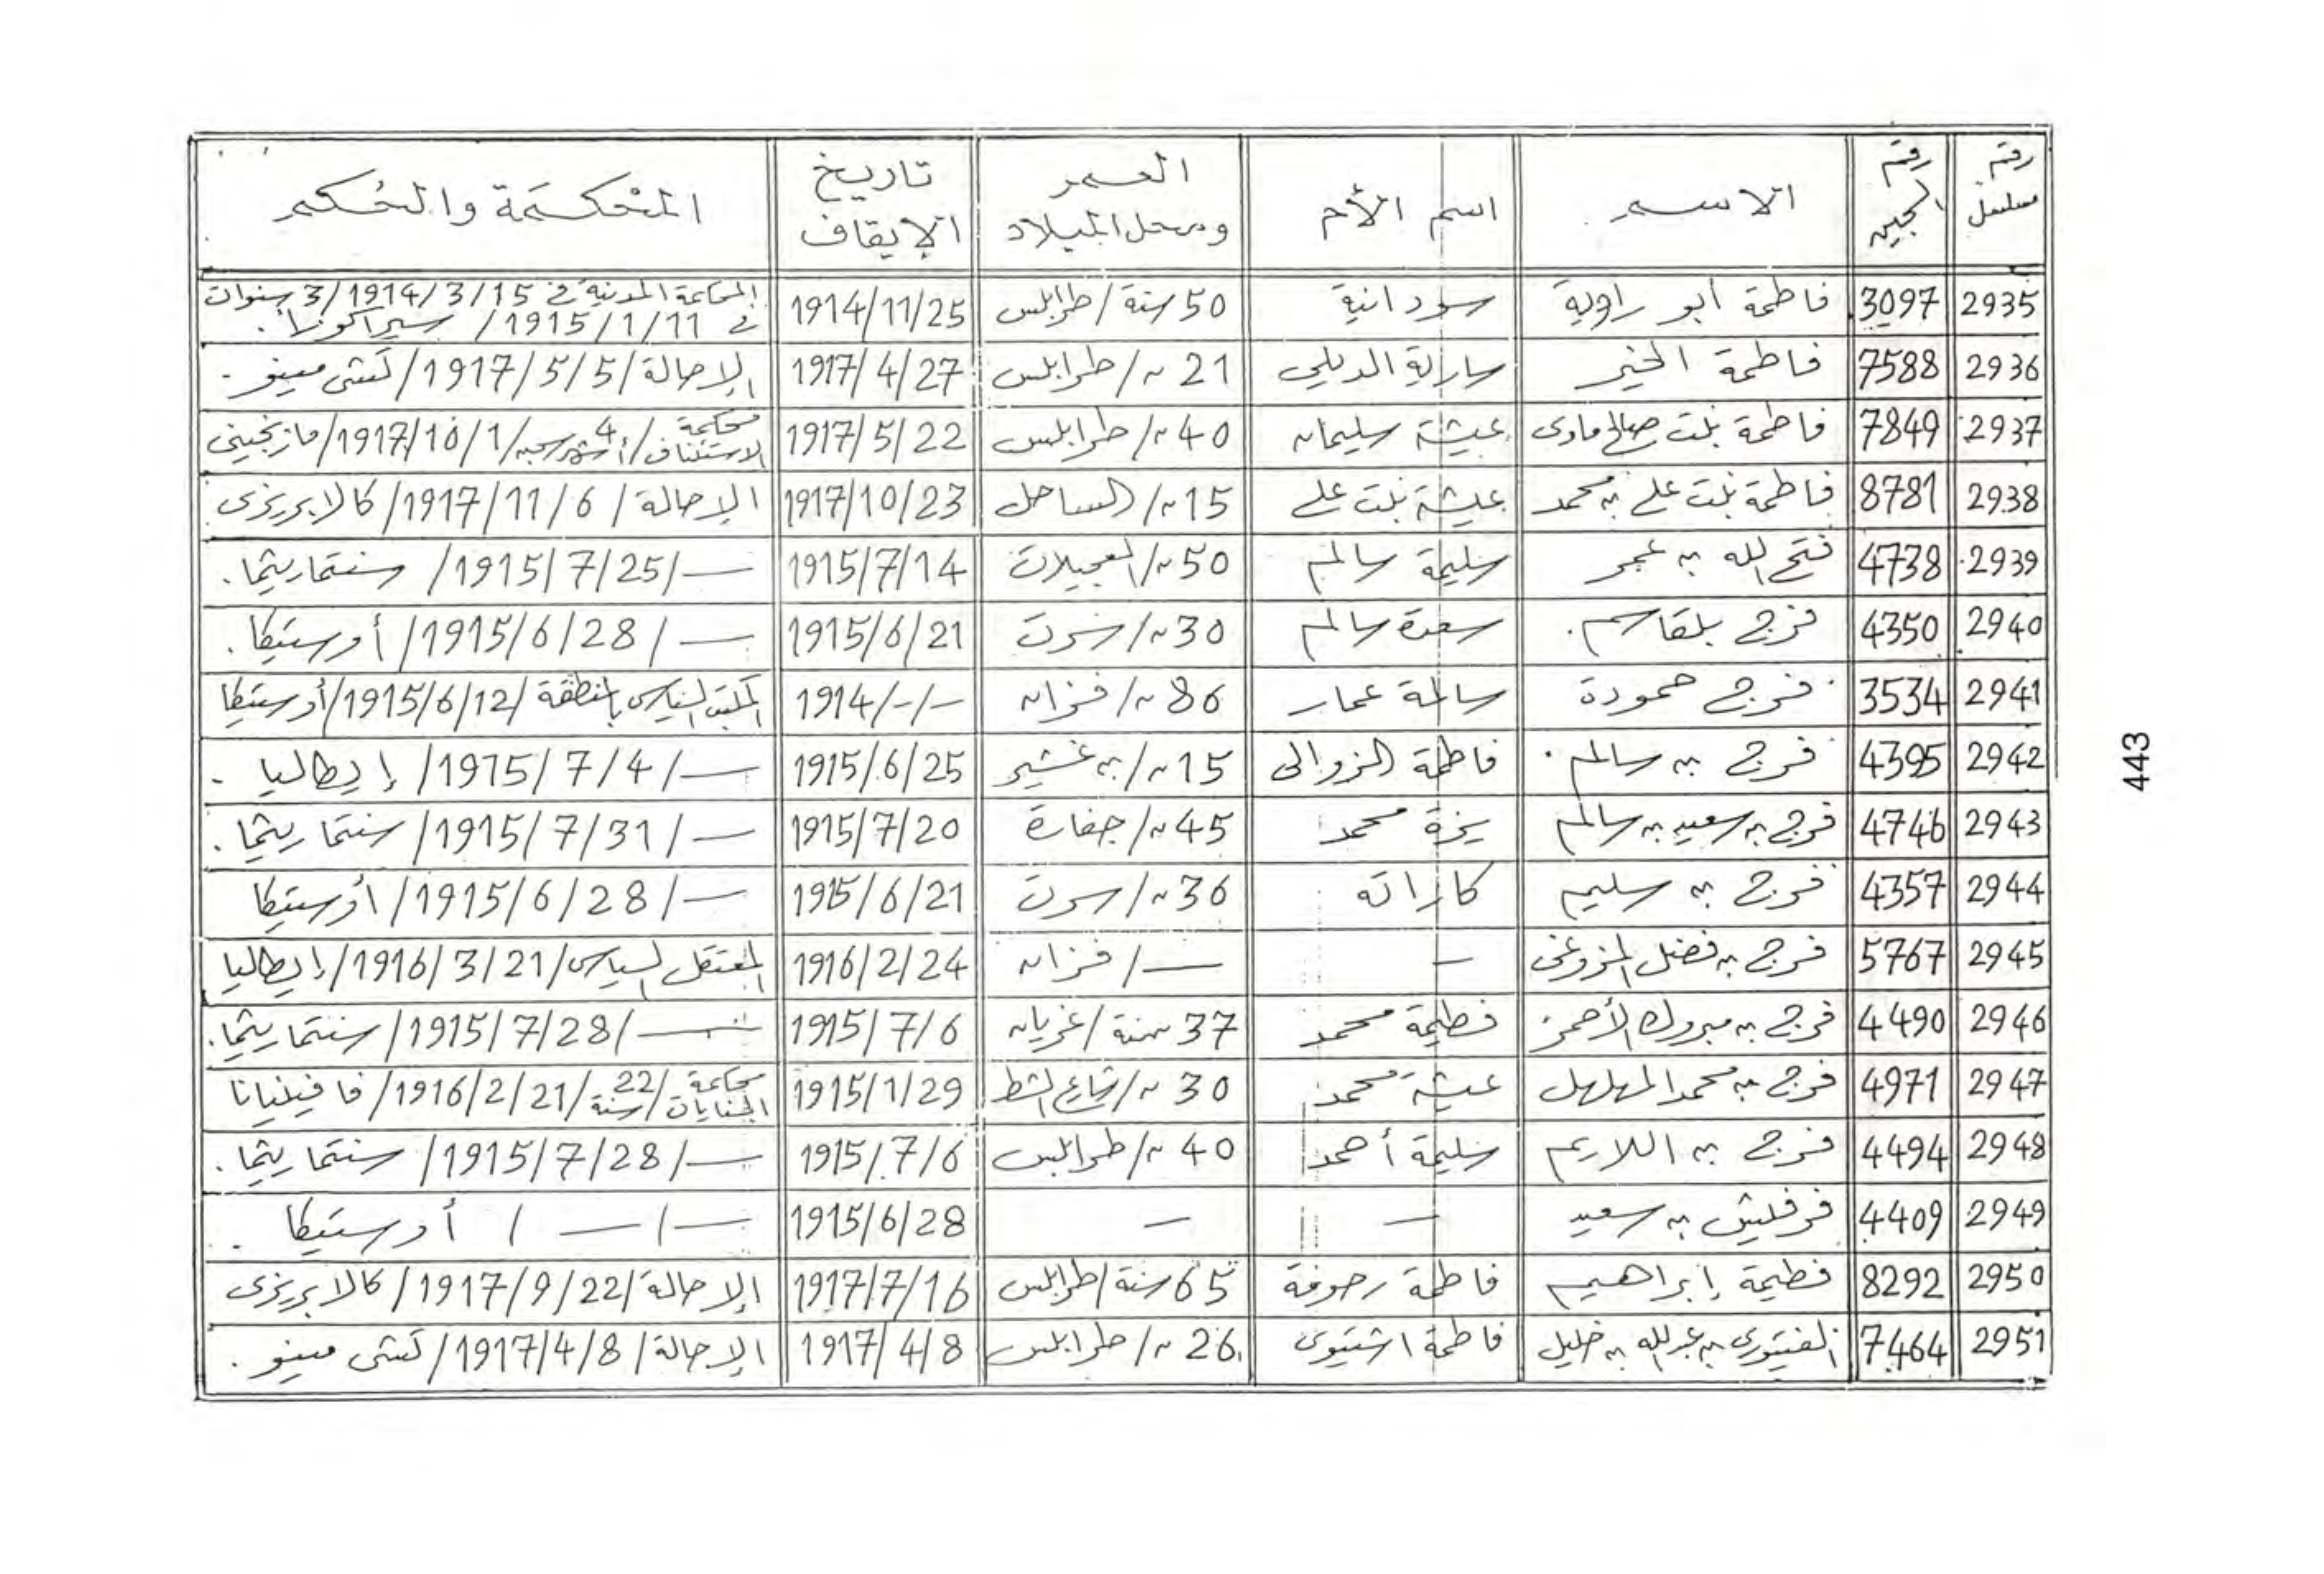 رقم مسلسل | رقم السجين | الاسم | اسم الأم | العمر ومحل الميلاد | تاريخ الإيقاف | المحكمة والحكم
2935 | 3097 | فاطمة أبو راوية | سودانية | 50 سنة / طرابلس | 1914/11/25 | المحاكمة المدنية في 1914/3/15 / 3 سنوات في 1915/1/11 / سيراكوزا .
2936 | 7588 | فاطمة الخير | سارية الديلي | 21 ~ / طرابلس | 1917/4/27 | الإحالة / 1917/5/5 / كستى مينو -
2937 | 7849 | فاطمة بنت صالح مادى | عيشة سليمان | 40 ~ / طرابلس | 1917/5/22 | محكمة الاستئناف / 4 أشهر سجن / 1917/10/1 /
2938 | 8781 | فاطمة بنت علي بن محمد | عيشة بنت علي | 15 ~ / الساحل | 1917/10/23 | الإحالة / 1917/11/6 / كالابريزى
2939 | 4738 | فتح الله بن عمر | سليمة سالم | 50 ~ / العجيلات | 1915/7/14 | — / 1915/7/25 / سنتماريثما .
2940 | 4350 | فرج بلقاسم . | سعدة سالم | 30 ~ / سرت | 1915/6/21 | — / 1915/6/28 / أوستيكا .
2941 | 3534 | فرج حمودة | سالمة عمار | 86 ~ / فزان | 1914/-/- | المكتب السياسى بالمنطقة / 1915/6/12 / أوستيكا
2942 | 4395 | فرج بن سالم . | فاطمة الزوالى | 15 ~ / بن غشير | 1915/6/25 | — / 1915/7/4 / إيطاليا -
2943 | 4746 | فرج بن سعيد بن سالم | يزة محمد | 45 ~ / جفارة | 1915/7/20 | — / 1915/7/31 / سنتماريثما .
2944 | 4357 | فرج بن سليم | كاراته | 36 ~ / سرت | 1915/6/21 | — / 1915/6/28 / أوستيكا
2945 | 5767 | فرج بن فضل المزوغى | — | — / فزان | 1916/2/24 | المعتقل السياسى / 1916/3/21 / إيطاليا
2946 | 4490 | فرج بن مبروك الأحمر | فطيمة محمد | 37 سنة / غريان | 1915/7/6 | — / 1915/7/28 / سنتماريثما .
2947 | 4971 | فرج بن محمد المهلهل | عيشة محمد | 30 ~ / شارع الشط | 1915/1/29 | محاكمة الجنايات / 22 سنة / 1916/2/21 / فافينيانا
2948 | 4494 | فرج بن اللايم | سليمة أحمد | 40 ~ / طرابلس | 1915/7/6 | — / 1915/7/28 / سنتماريثما .
2949 | 4409 | فرفليش بن سعيد | — | — | 1915/6/28 | — / — / أوستيكا .
2950 | 8292 | فطيمة إبراهيم | فاطمة رحومة | 65 سنة / طرابلس | 1917/7/16 | الإحالة / 1917/9/22 / كالابريزى
2951 | 7464 | الفيتورى بن عبد الله بن خليل | فاطمة اشتيوى | 26 ~ / طرابلس | 1917/4/8 | الإحالة / 1917/4/8 / كستى مينو .
443